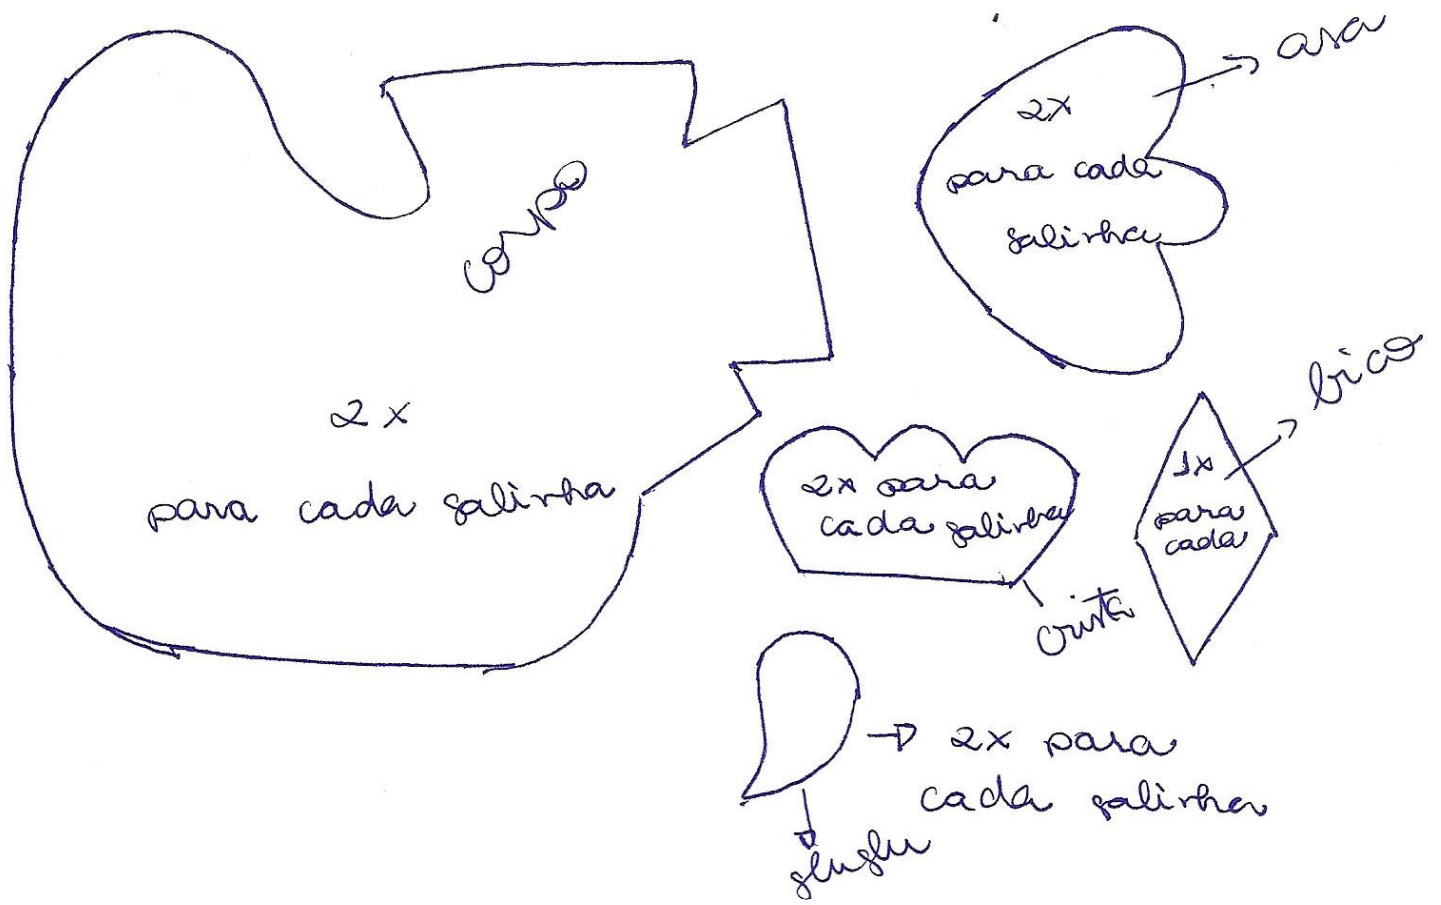 corpo
2x
para cada galinha
asa
2x
para cada
galinha
2x para
cada galinha
crista
bico
1x
para
cada
2x para
cada galinha
gluglu